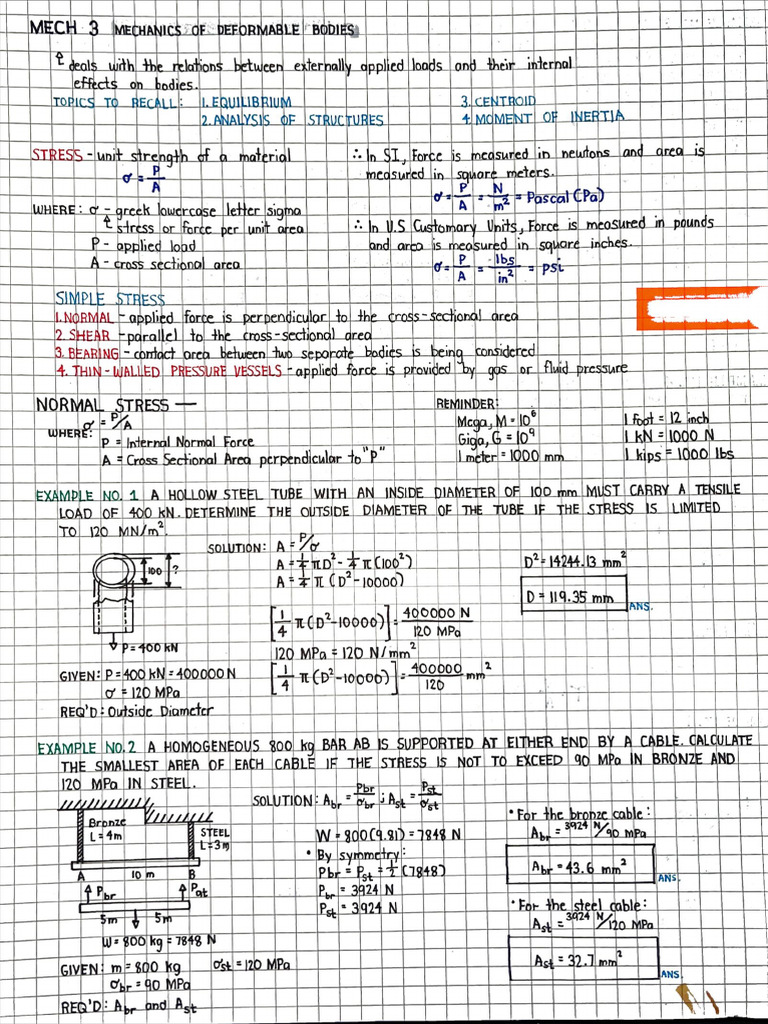 MECH 3 MECHANICS OF DEFORMABLE BODIES
deals with the relations between externally applied loads and their internal
effects on bodies.
TOPICS TO RECALL: 1. EQUILIBRIUM 3. CENTROID
2. ANALYSIS OF STRUCTURES 4. MOMENT OF INERTIA
STRESS - unit strength of a material
σ = P/A
WHERE: σ - greek lowercase letter sigma
stress or force per unit area
P - applied load
A - cross sectional area
∴ In SI, Force is measured in neutons and area is
measured in square meters.
σ = P/A = N/m² = Pascal (Pa)
∴ In U.S Customary Units, Force is measured in pounds
and area is measured in square inches.
σ = P/A = lbs/in² = psi
SIMPLE STRESS
1. NORMAL - applied force is perpendicular to the cross-sectional area
2. SHEAR - parallel to the cross-sectional area
3. BEARING - contact area between two separate bodies is being considered
4. THIN-WALLED PRESSURE VESSELS - applied force is provided by gas or fluid pressure
NORMAL STRESS —
σ = P/A
WHERE:
P = Internal Normal Force
A = Cross Sectional Area perpendicular to "P"
REMINDER:
Mega, M = 10⁶ 1 foot = 12 inch
Giga, G = 10⁹ 1 kN = 1000 N
1 meter = 1000 mm 1 kips = 1000 lbs
EXAMPLE NO. 1 A HOLLOW STEEL TUBE WITH AN INSIDE DIAMETER OF 100 mm MUST CARRY A TENSILE
LOAD OF 400 kN. DETERMINE THE OUTSIDE DIAMETER OF THE TUBE IF THE STRESS IS LIMITED
TO 120 MN/m².
100 ?
P = 400 kN
GIVEN: P = 400 kN = 400000 N
σ = 120 MPa
REQ'D: Outside Diameter
SOLUTION: A = P/σ
A = 1/4 πD² - 1/4 π(100²)
A = 1/4 π (D² - 10000)
[1/4 π(D² - 10000)] = 400000 N / 120 MPa
120 MPa = 120 N/mm²
[1/4 π(D² - 10000)] = 400000/120 mm²
D² = 14244.13 mm²
D = 119.35 mm
ANS.
EXAMPLE NO. 2 A HOMOGENEOUS 800 kg BAR AB IS SUPPORTED AT EITHER END BY A CABLE. CALCULATE
THE SMALLEST AREA OF EACH CABLE IF THE STRESS IS NOT TO EXCEED 90 MPa IN BRONZE AND
120 MPa IN STEEL.
Bronze
L = 4m
STEEL
L = 3m
A 10 m B
Pbr Pst
5m 5m
W = 800 kg = 7848 N
GIVEN: m = 800 kg σst = 120 MPa
σbr = 90 MPa
REQ'D: Abr and Ast
SOLUTION: Abr = Pbr/σbr ; Ast = Pst/σst
W = 800(9.81) = 7848 N
• By symmetry:
Pbr = Pst = 1/2 (7848)
Pbr = 3924 N
Pst = 3924 N
• For the bronze cable:
Abr = 3924 N/90 MPa
Abr = 43.6 mm²
ANS.
• For the steel cable:
Ast = 3924 N/120 MPa
Ast = 32.7 mm²
ANS.